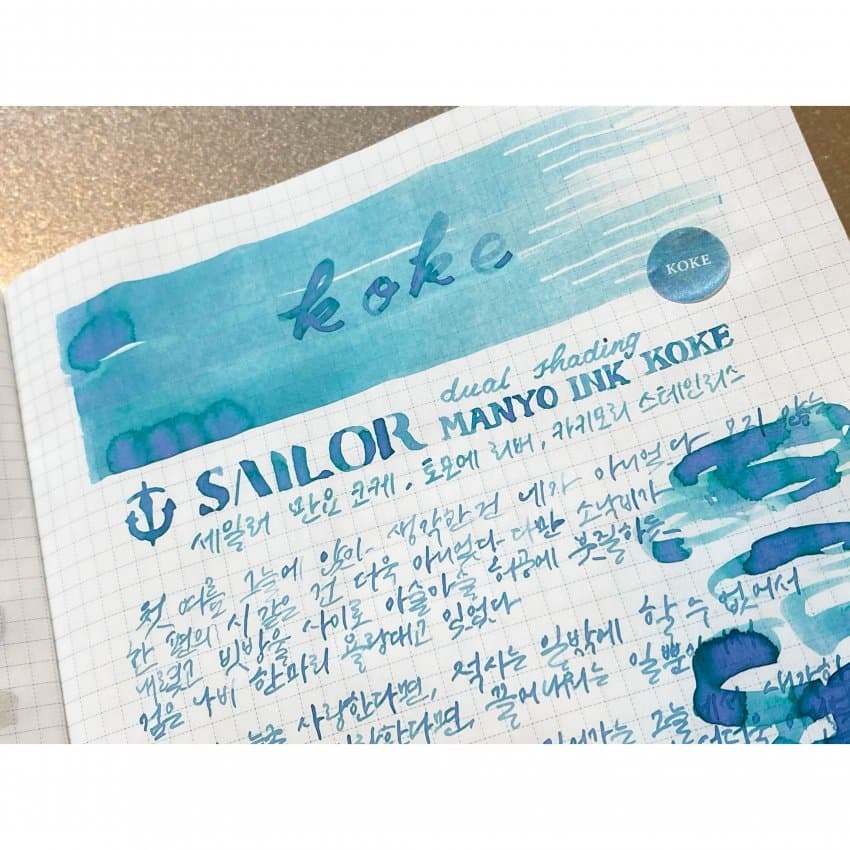 koke
KOKE
dual shading
SAILOR MANYO INK KOKE
세일러 만요 코케 · 토모에 리버, 카키모리 스테인리스
첫 여름 그늘에 앉아 생각한 건 네가 아니었다 오지 않는
한 편의 시 같은 건 더욱 아니었다 다만 소낙비가
내리꽂고 빗방울 사이로 아슬아슬 허공에 붓질하는
검은 나비 한마리 올랑대고 있었다
사랑한다면, 적시는 일밖에 할 수 없어서
한다면, 끌어내리는 일뿐
그늘